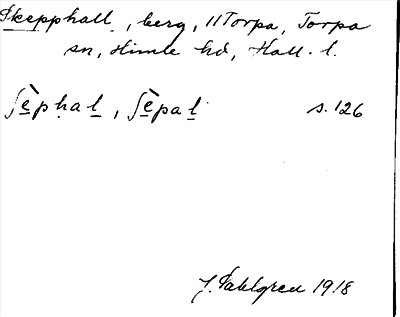 Skepphall, berg, 11 Torpa, Torpa
sn, Himle hd, Hall. l.
ʃè̠pḥal̠, ʃè̠pal̠ s. 126
J. Sahlgren 1918